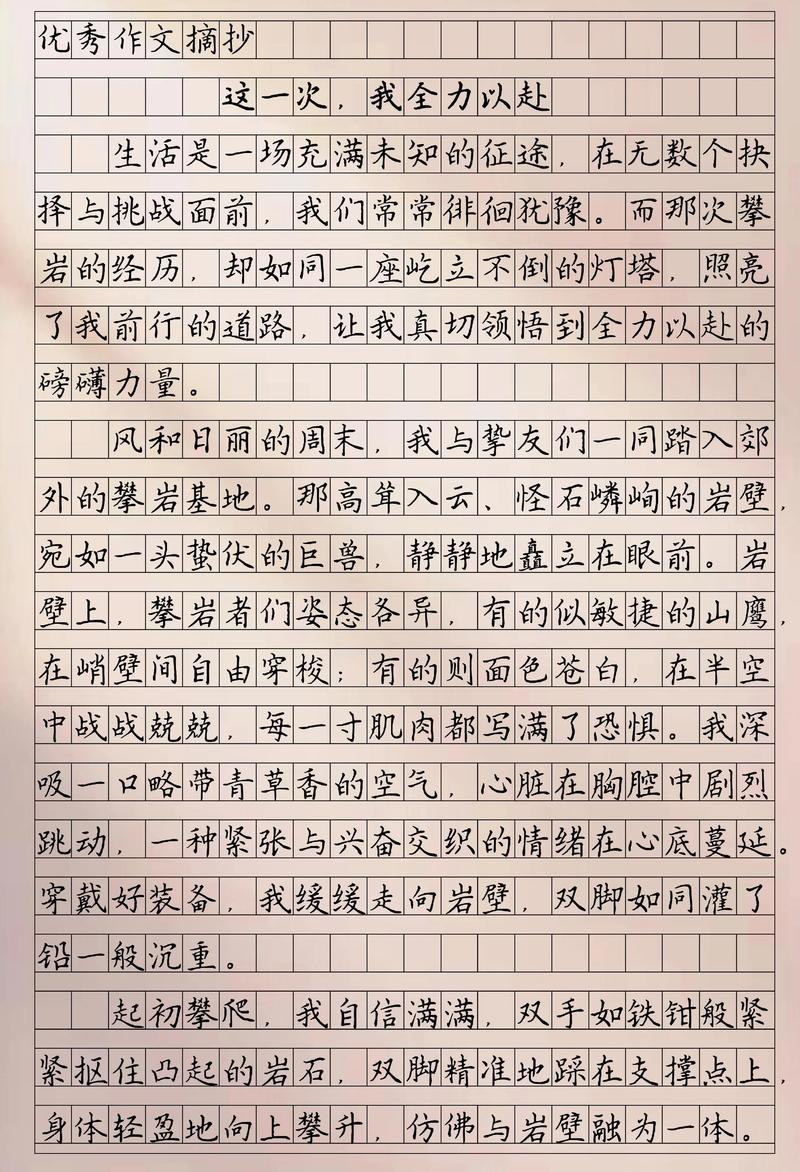 优秀作文摘抄
这一次，我全力以赴
生活是一场充满未知的征途，在无数个抉
择与挑战面前，我们常常徘徊犹豫。而那次攀
岩的经历，却如同一座屹立不倒的灯塔，照亮
了我前行的道路，让我真切领悟到全力以赴的
磅礴力量。
风和日丽的周末，我与挚友们一同踏入郊
外的攀岩基地。那高耸入云、怪石嶙峋的岩壁，
宛如一头蛰伏的巨兽，静静地矗立在眼前。岩
壁上，攀岩者们姿态各异，有的似敏捷的山鹰，
在峭壁间自由穿梭；有的则面色苍白，在半空
中战战兢兢，每一寸肌肉都写满了恐惧。我深
吸一口略带青草香的空气，心脏在胸腔中剧烈
跳动，一种紧张与兴奋交织的情绪在心底蔓延。
穿戴好装备，我缓缓走向岩壁，双脚如同灌了
铅一般沉重。
起初攀爬，我自信满满，双手如铁钳般紧
紧抠住凸起的岩石，双脚精准地踩在支撑点上，
身体轻盈地向上攀升，仿佛与岩壁融为一体。